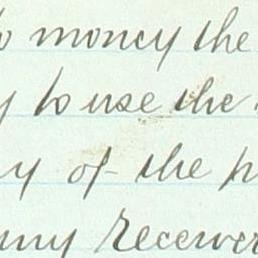 to money the
to use the
of the
my receiver